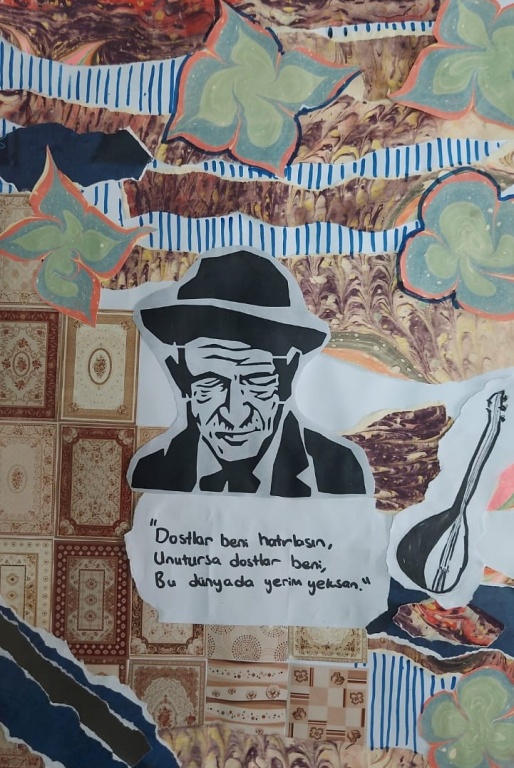 "Dostlar beni hatırlasın,
Unutursa dostlar beni,
Bu dünyada yerim yeksan."